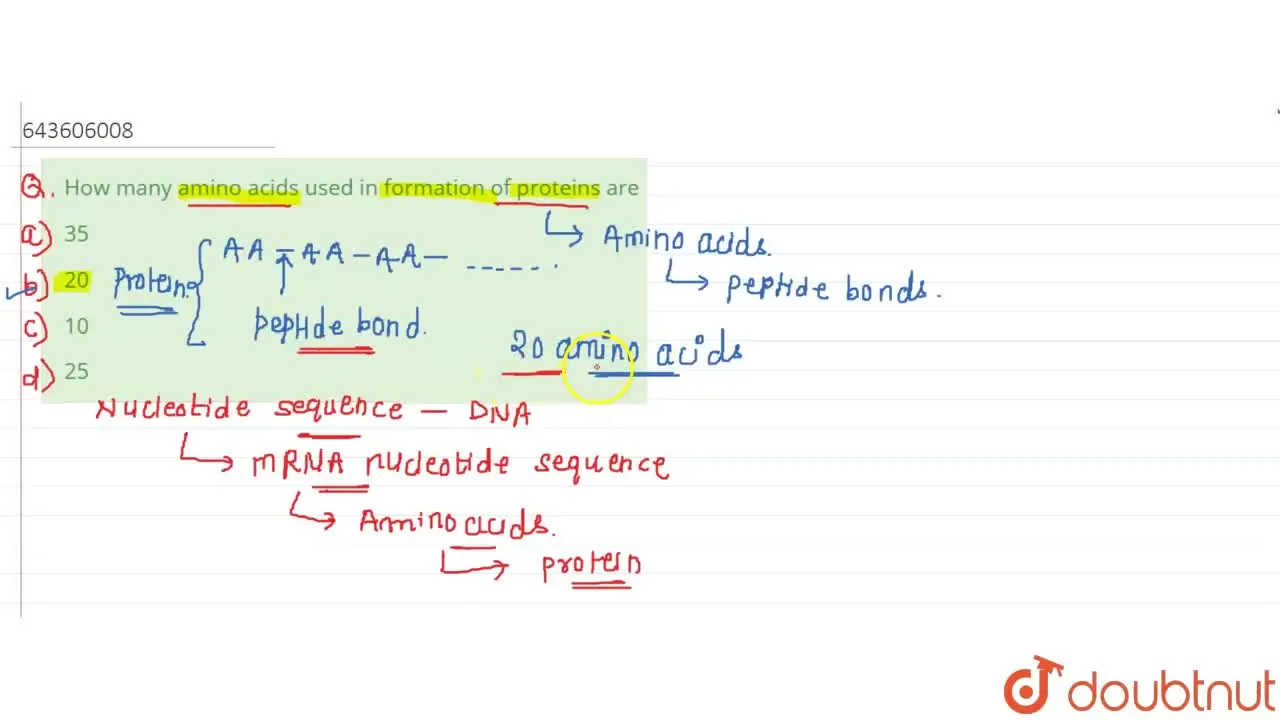 643606008
Q. How many amino acids used in formation of proteins are
a) 35
Amino acids.
AA - AA - AA -
b) 20
Protein
peptide bonds.
c) 10
peptide bond.
20 amino acids
d) 25
Nucleotide sequence - DNA
mRNA nucleotide sequence
Amino acids.
protein
doubtnut